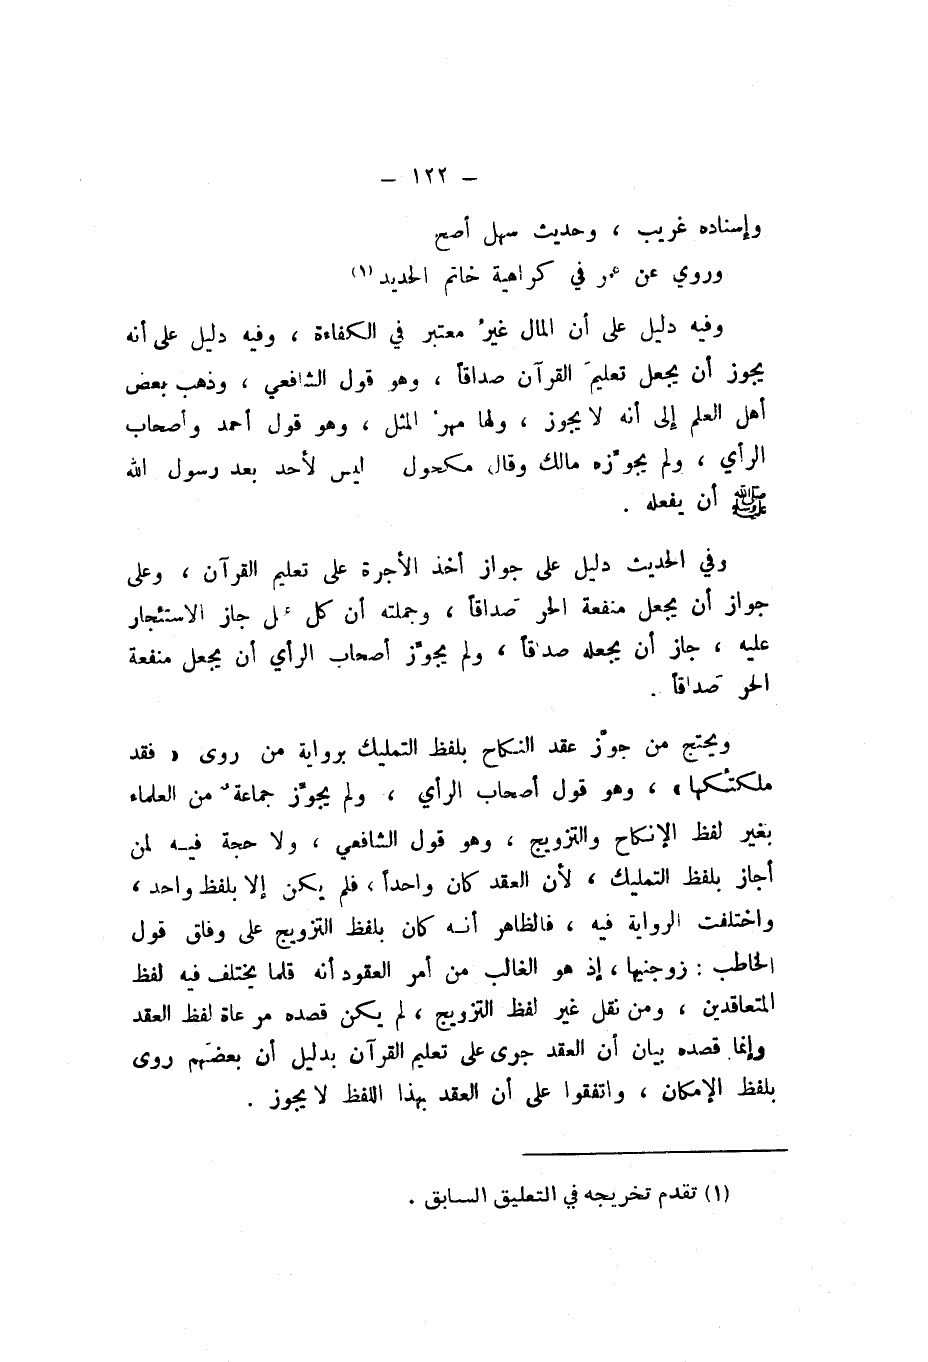 – ١٢٢ –
وإسناده غريب ، وحديث سهل أصح
وروي عن عمر في كراهية خاتم الحديد (١)
وفيه دليل على أن المال غيرُ معتبر في الكفاءة ، وفيه دليل على أنه
يجوز أن يجعل تعليمَ القرآن صداقاً ، وهو قول الشافعي ، وذهب بعض
أهل العلم إلى أنه لا يجوز ، ولها مهرُ المثل ، وهو قول أحمد وأصحاب
الرأي ، ولم يجوّزه مالك وقال مكحول ليس لأحد بعد رسول الله
ﷺ أن يفعله .
وفي الحديث دليل على جواز أخذ الأجرة على تعليم القرآن ، وعلى
جواز أن يجعل منفعة الحر صَداقاً ، وجملته أن كل عمل جاز الاستئجار
عليه ، جاز أن يجعله صداقاً ، ولم يجوّز أصحاب الرأي أن يجعل منفعة
الحر صَداقاً .
ويحتج من جوّز عقد النكاح بلفظ التمليك برواية من روى « فقد
ملكتُكها » ، وهو قول أصحاب الرأي ، ولم يجوّز جماعةٌ من العلماء
بغير لفظ الإنكاح والتزويج ، وهو قول الشافعي ، ولا حجة فيه لمن
أجاز بلفظ التمليك ، لأن العقد كان واحداً ، فلم يكن إلا بلفظ واحد ،
واختلفت الرواية فيه ، فالظاهر أنه كان بلفظ التزويج على وفاق قول
الخاطب : زوجنيها ، إذ هو الغالب من أمر العقود أنه قلما يختلف فيه لفظ
المتعاقدين ، ومن نقل غير لفظ التزويج ، لم يكن قصده مراعاة لفظ العقد
وإنما قصده بيان أن العقد جرى على تعليم القرآن بدليل أن بعضهم روى
بلفظ الإمكان ، واتفقوا على أن العقد بهذا اللفظ لا يجوز .
(١) تقدم تخريجه في التعليق السابق .